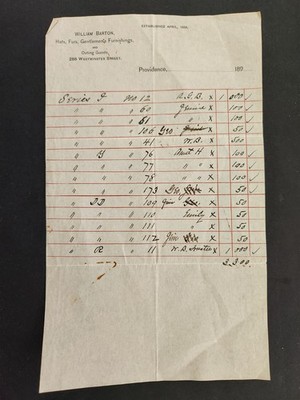 ESTABLISHED APRIL, 1891.
WILLIAM BARTON,
Hats, Furs, Gentlemen's Furnishings,
and
Riding Goods,
WESTMINSTER STREET.
Providence, 189
Series F No 12 X 1 000 ✓
" " " 60 X 100 ✓
" " " 61 " X 100 ✓
" " " 106 Geo X 50 ✓
" " " 41 W.B. X 500 ✓
" " 76 Aunt H X 100 ✓
" " " 77 " " X 100 ✓
" " " 78 " " X 100 ✓
" " " 173 Geo X 50 ✓
" DD " 109 Jim X 50
" " " 110 Emily X 50
" " " 111 " X 50
" " " 112 Jim X 50
" R " 11 W. B. X 1 000 ✓
3 300